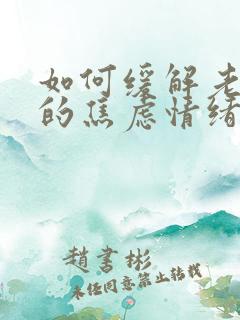 如何缓解老
的焦虑情绪
赵书彬
未经同意禁止转载